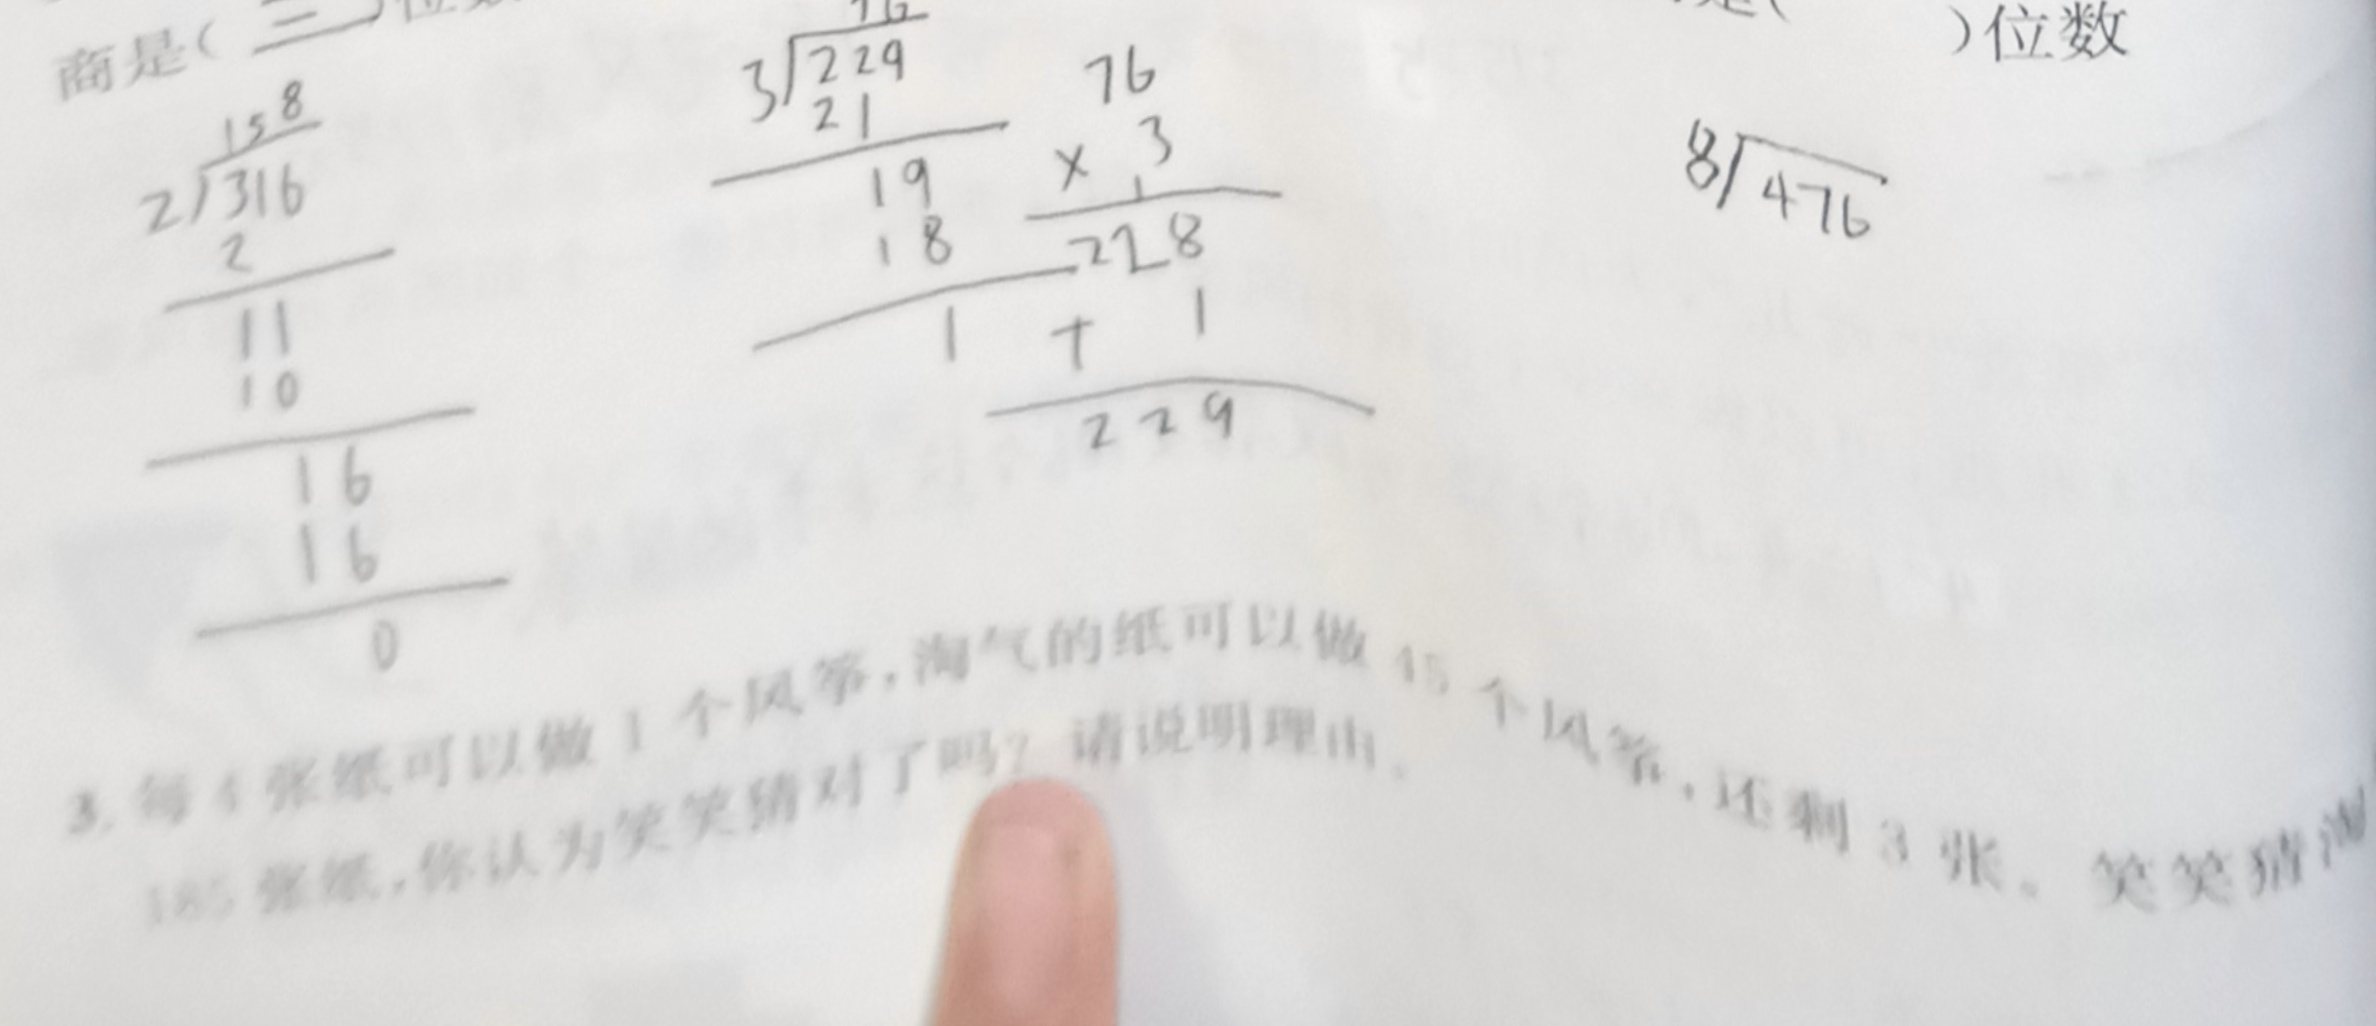 商是(三)位数
是( )位数
158
2)316
2
11
10
16
16
0
76
3)229
21
19
18
1
76
× 3
1
228
+ 1
229
8)476
3. 每4张纸可以做1个风筝,淘气的纸可以做45个风筝,还剩3张。笑笑猜淘
185张纸,你认为笑笑猜对了吗?请说明理由。